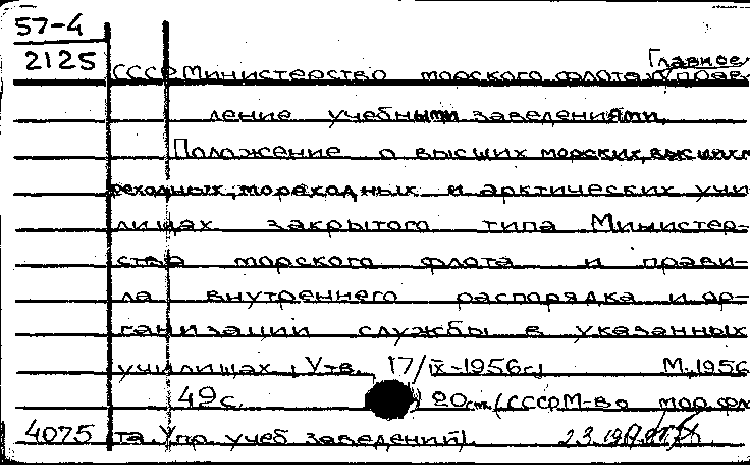 57-4
2125
Главное
СССР Министерство морского флота Управ-
ление учебными заведениями.
Положение о высших морских, высших
реходных, мореходных и арктических учи
лищах закрытого типа Министер-
ства морского флота и прави-
ла внутреннего распорядка и ор-
ганизации службы в указанных
училищах. Утв. 17/IX-1956г. М. 1956
49 с. 20 см. (СССР М-во мор. фло
4075 та Упр. учеб. заведений).